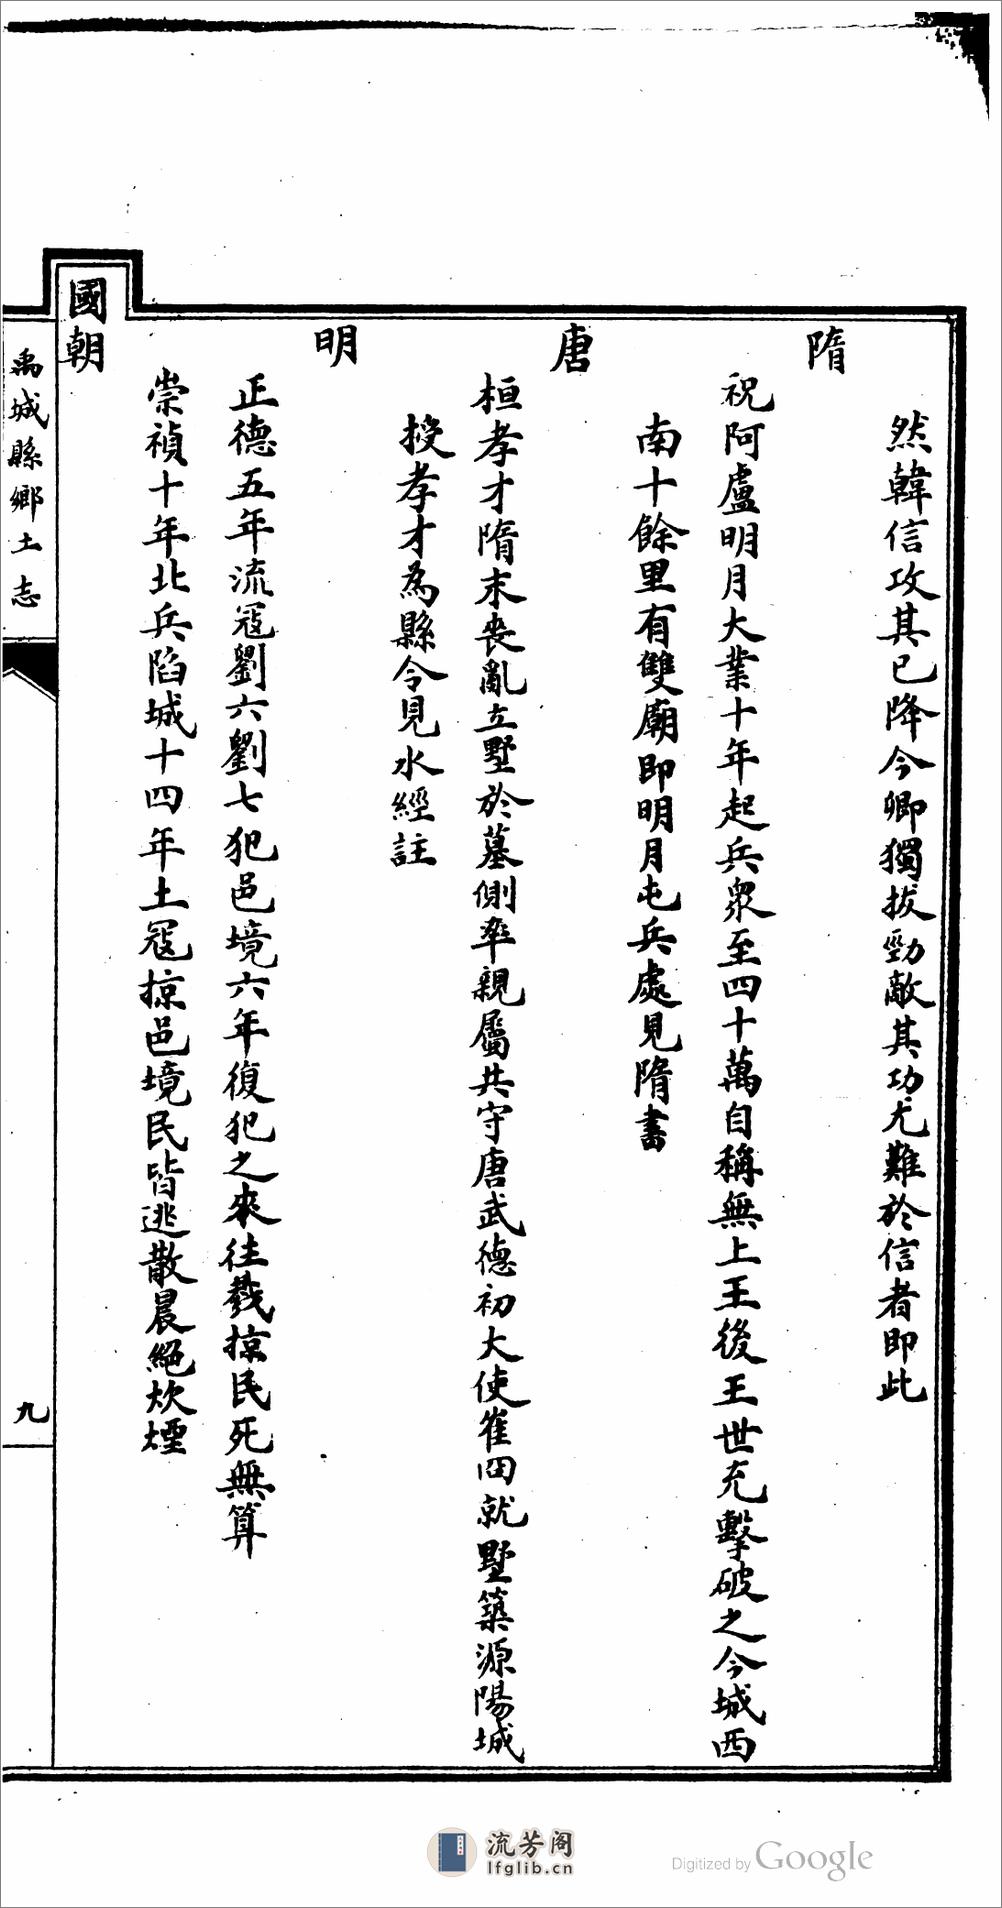 然韓信攻其已降今卿獨拔勁敵其功尤難於信者即此
隋
祝阿盧明月大業十年起兵衆至四十萬自稱無上王後王世充擊破之今城西
南十餘里有雙廟即明月屯兵處見隋書
唐
桓孝才隋末喪亂立墅於墓側率親屬共守唐武德初大使崔同就墅築源陽城
授孝才為縣令見水經註
明
正德五年流寇劉六劉七犯邑境六年復犯之來往戮掠民死無算
崇禎十年北兵陷城十四年土寇掠邑境民皆逃散晨絕炊煙
國朝
禹城縣鄉土志
九
流芳阁
lfglib.cn
Digitized by Google